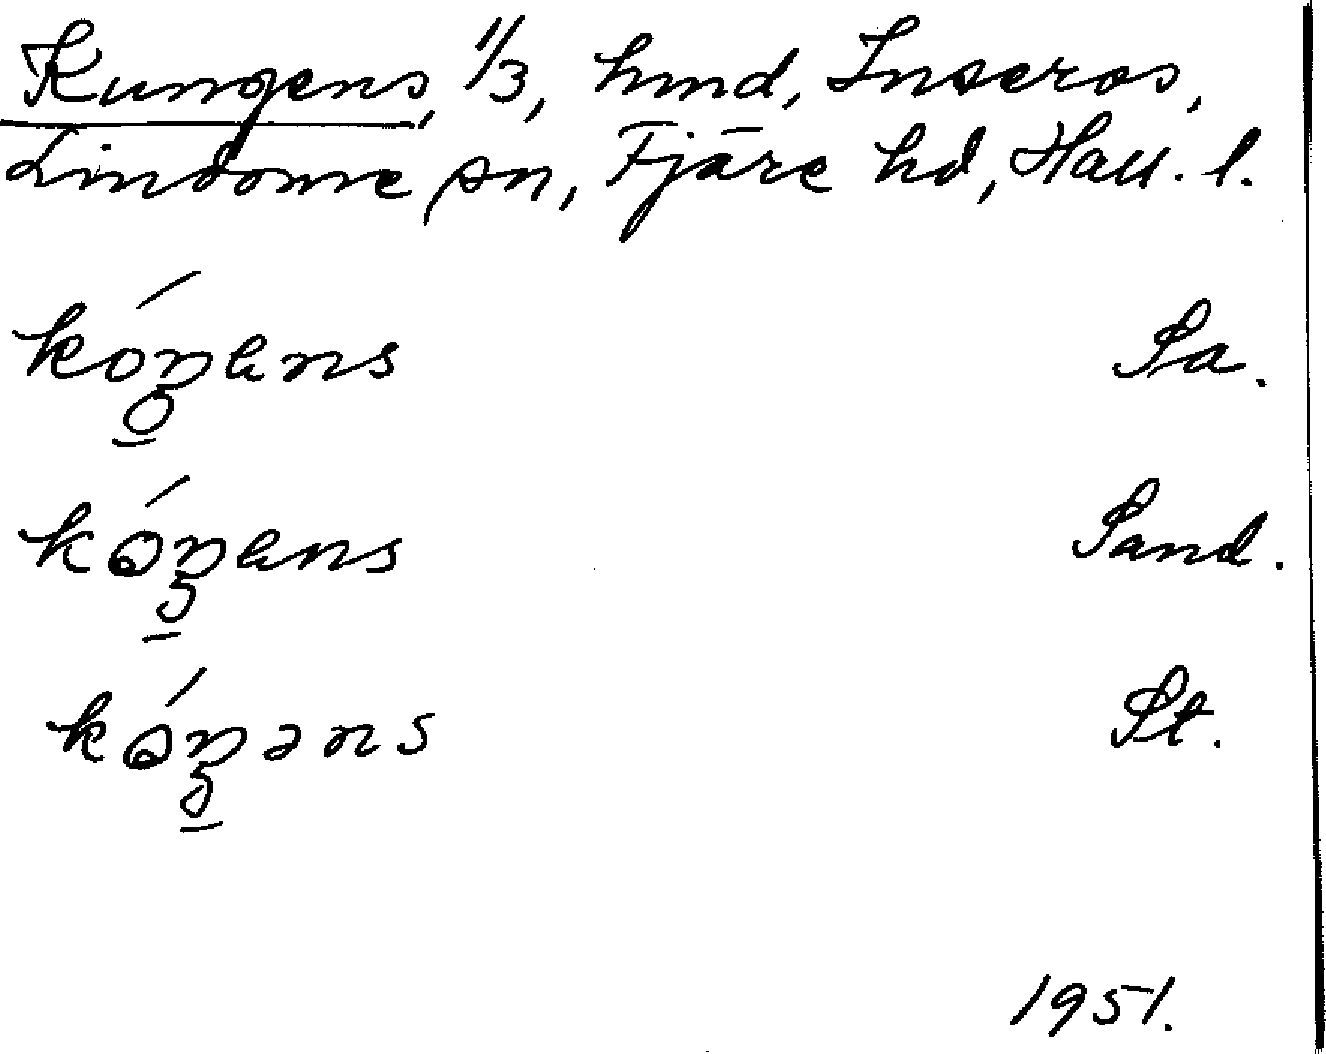 Kungens, 1/3, hmd, Inseros,
Lindome sn, Fjäre hd, Hall. l.
kóŋens Sa.
kóŋens Sand.
kóŋəns St.
1951.